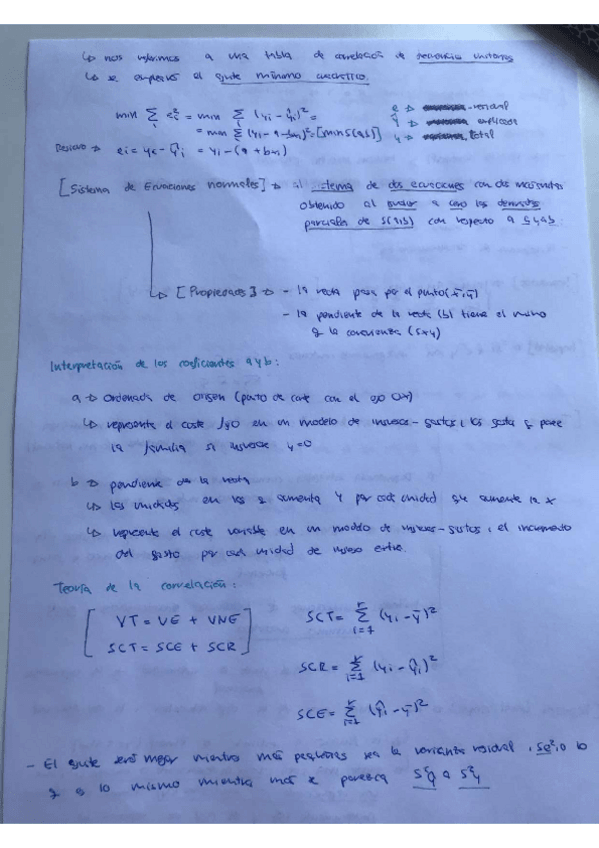 ↳ nos referimos a una tabla de correlación de frecuencias unitarias
↳ se empleará el ajuste mínimo cuadrático.
min Σ ei² = min Σ (yi - ŷi)² =
= min Σ (yi - a - bxi)² = [min S(a,b)]
e → residual
ŷ → explicada
y → total
Residuo → ei = yi - ŷi = yi - (a + bxi)
[Sistema de Ecuaciones normales] → al sistema de dos ecuaciones con dos incógnitas
obtenido al igualar a cero las derivadas
parciales de S(a,b) con respecto a a y a b.
↳ [Propiedades] → - la recta pasa por el punto (x̄, ȳ)
- la pendiente de la recta (b) tiene el mismo
q la covarianza (Sxy)
Interpretación de los coeficientes a y b:
a → Ordenada de origen (punto de corte con el eje OY)
↳ representa el coste fijo en un modelo de ingresos - gastos, los gasta q posee
la familia si ingresos y=0
b → pendiente de la recta
↳ las unidades en las q aumenta Y por cada unidad que aumente la x
↳ representa el coste variable en un modelo de ingresos - gastos, el incremento
del gasto por cada unidad de ingreso extra.
Teoría de la correlación:
VT = VE + VNE
SCT = SCE + SCR
SCT = Σ i=1 (yi - ȳ)²
SCR = Σ i=1 (yi - ŷi)²
SCE = Σ i=1 (ŷi - ȳ)²
- El ajuste será mejor mientras más pequeña sea la varianza residual, Se², o lo
q es lo mismo mientras más se parezca S²ŷ a S²y